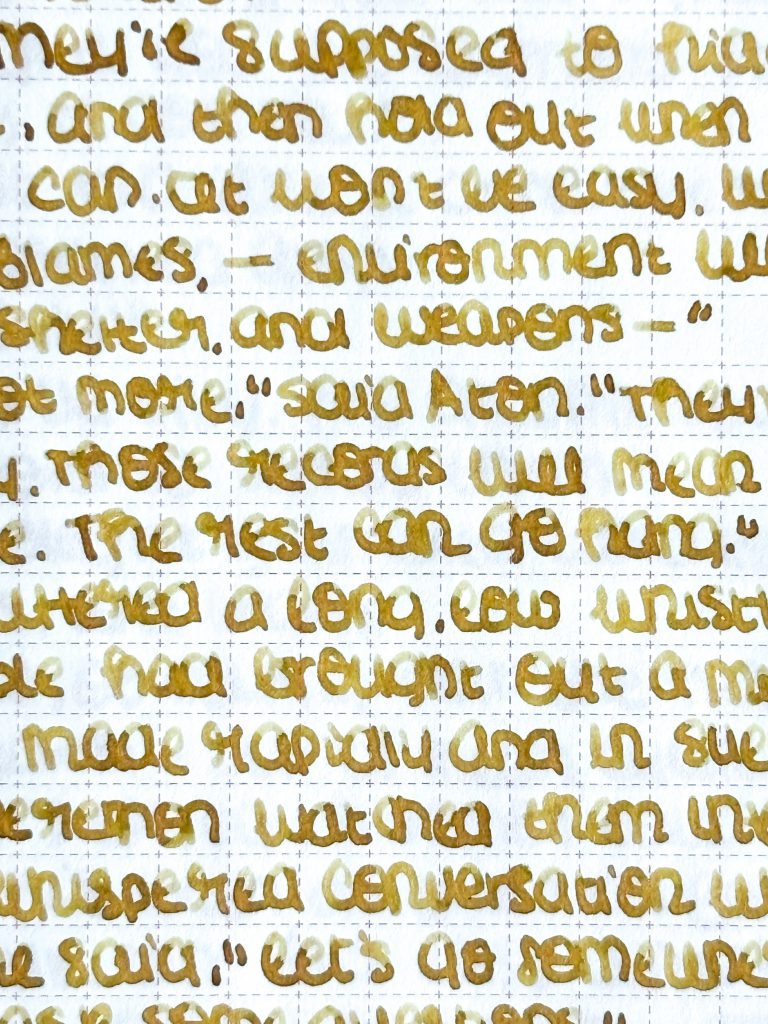 They're supposed to hide
, and then hold out when
can. It won't be easy. W
blames, — environment wi
shelter, and weapons —"
ot more," said Aton. "They'
y. Those records will mean
e. The rest can go hang."
uttered a long, low whist
ole had brought out a m
made rapidly and in sile
eremen watched them inte
whispered conversation w
he said. "Let's go somewhe
ask some questions."